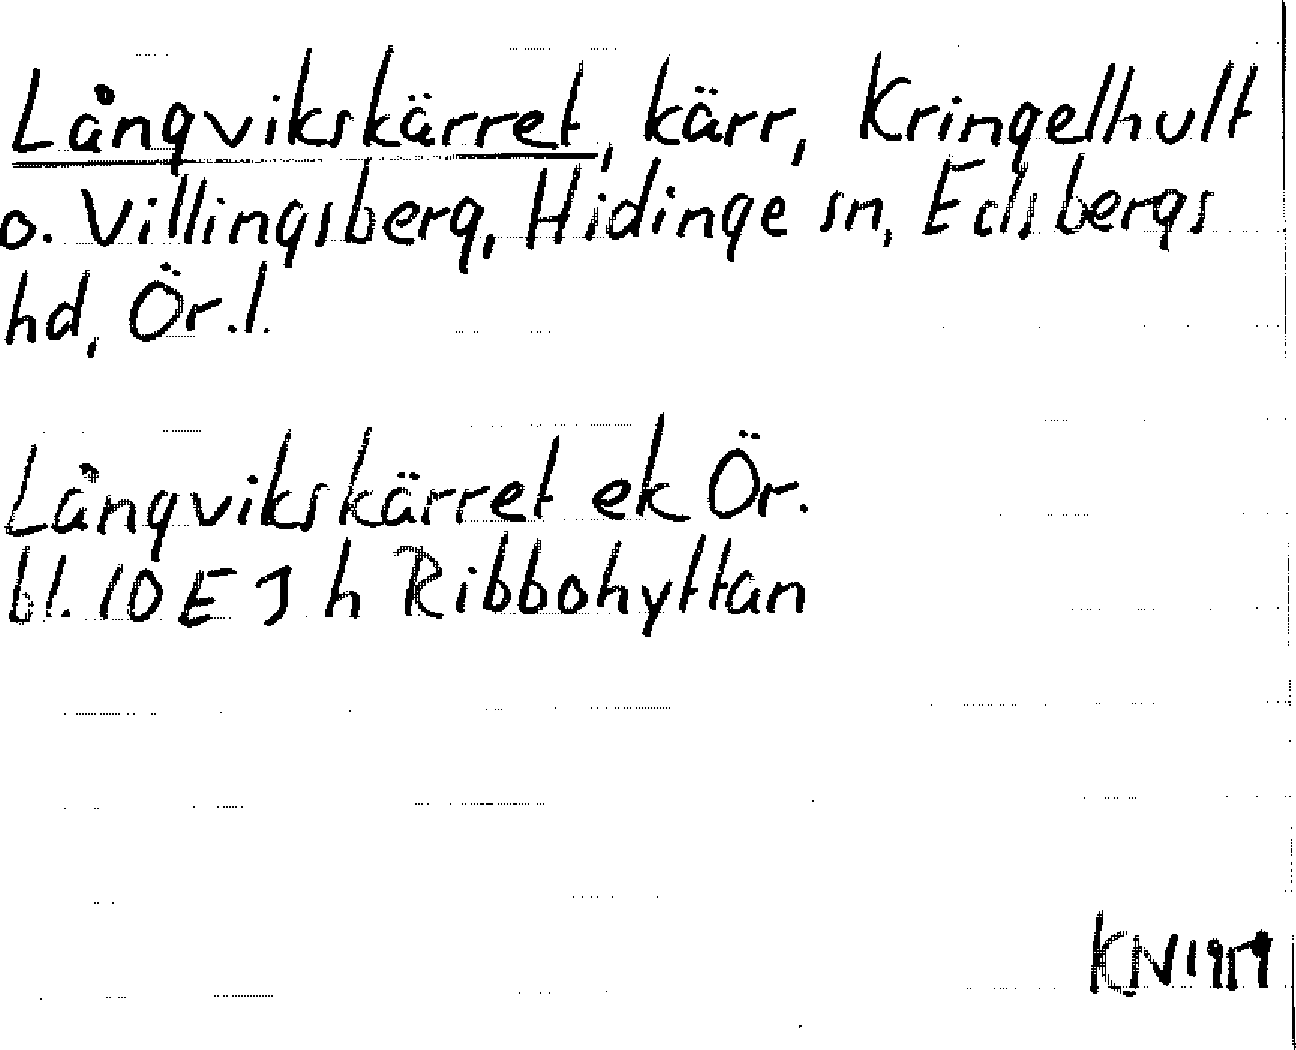 Långvikskärret, kärr, Kringelhult
o. Villingsberg, Hidinge sn, Edsbergs
hd, Ör.l.
Långvikskärret ek Ör.
bl. 10 E J h Ribbohyttan
KN 1959